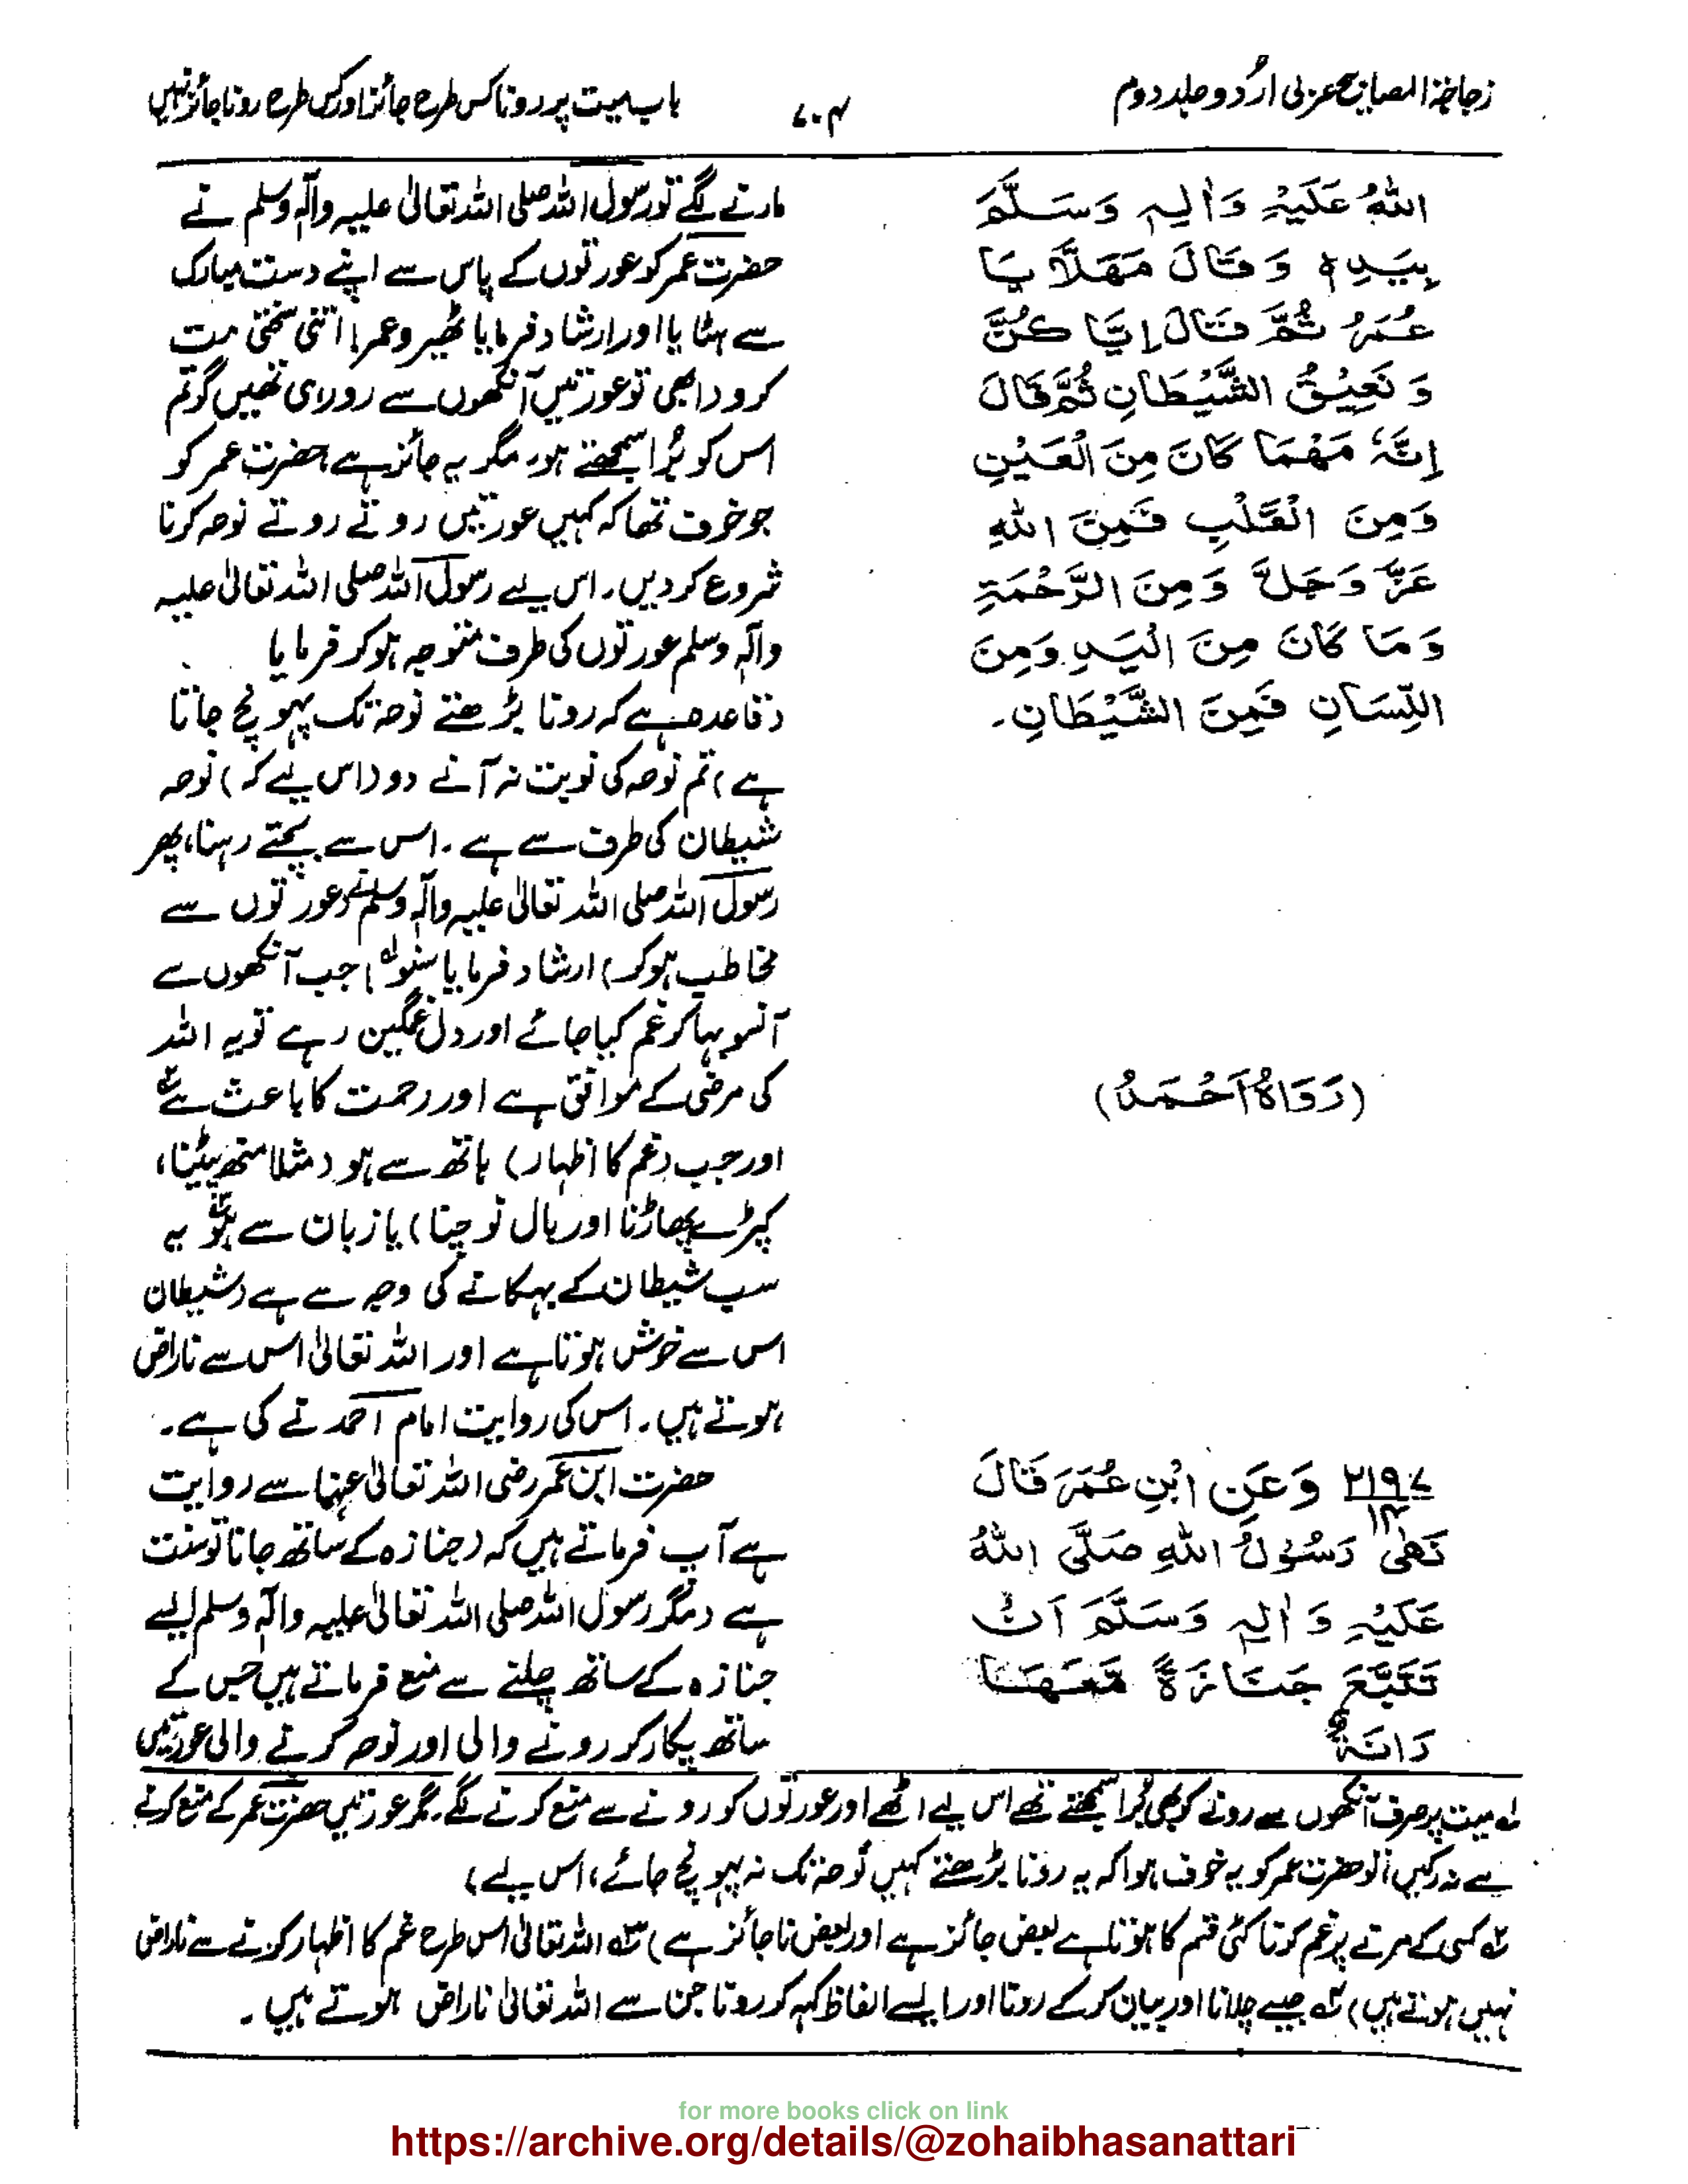 زجاجۃ المصابیح عربی اردو جلد دوم
۷۰۴
باب میت پر رونا کس طرح جائز اور کس طرح رونا جائز نہیں
اللّٰہُ عَلَیْہِ وَاٰلِہٖ وَسَلَّمَ
بِیَدِہٖ وَقَالَ مَھْلًا یَا
عُمَرُ ثُمَّ قَالَ اِیَّا کُنَّ
وَ نَعِیْقُ الشَّیْطَانِ ثُمَّ قَالَ
اِنَّہٗ مَھْمَا کَانَ مِنَ الْعَیْنِ
وَمِنَ الْقَلْبِ فَمِنَ اللّٰہِ
عَزَّ وَجَلَّ وَمِنَ الرَّحْمَۃِ
وَمَا کَانَ مِنَ الْیَدِ وَمِنَ
اللِّسَانِ فَمِنَ الشَّیْطَانِ۔
(رَوَاہُ اَحْمَدُ)
۲۱۹۷/۱۳ وَعَنِ ابْنِ عُمَرَ قَالَ
نَھٰی رَسُوْلُ اللّٰہِ صَلَّی اللّٰہُ
عَلَیْہِ وَاٰلِہٖ وَسَلَّمَ اَنْ
تَتَّبِعَ جَنَازَۃً مَّعَھَا
رَانَّۃٌ
مارنے لگے تو رسول اللہ صلی اللہ تعالیٰ علیہ وآلہٖ وسلم نے
حضرت عمر کو عورتوں کے پاس سے اپنے دست مبارک
سے ہٹایا اور ارشاد فرمایا ٹھیرو عمر! اتنی سختی مت
کرو (ابھی تو عورتیں آنکھوں سے رو رہی تھیں گو تم
اس کو بُرا سمجھتے ہو، مگر یہ جائز ہے، حضرت عمر کو
جو خوف تھا کہ کہیں عورتیں روتے روتے نوحہ کرنا
شروع کر دیں۔ اس لیے رسول اللہ صلی اللہ تعالیٰ علیہ
وآلہٖ وسلم عورتوں کی طرف متوجہ ہو کر فرمایا
(قاعدہ ہے کہ رونا بڑھتے نوحہ تک پہونچ جاتا
ہے) تم نوحہ کی نوبت نہ آنے دو (اس لیے کہ) نوحہ
شیطان کی طرف سے ہے۔ اس سے بچتے رہنا، پھر
رسول اللہ صلی اللہ تعالیٰ علیہ وآلہٖ وسلم نے (عورتوں سے
مخاطب ہو کر) ارشاد فرمایا سنو! جب آنکھوں سے
آنسو بہا کر غم کیا جائے اور دل غمگین رہے تو یہ اللہ
کی مرضی کے موافق ہے اور رحمت کا باعث ہے
اور جب (غم کا اظہار) ہاتھ سے ہو (مثلا منھ پیٹنا،
کپڑے پھاڑنا اور بال نوچنا) یا زبان سے ہو تو یہ
سب شیطان کے بہکانے کی وجہ سے ہے (شیطان
اس سے خوش ہوتا ہے اور اللہ تعالیٰ اس سے ناراض
ہوتے ہیں۔ اس کی روایت امام احمد نے کی ہے۔
حضرت ابن عمر رضی اللہ تعالیٰ عنہما سے روایت
ہے آپ فرماتے ہیں کہ (جنازہ کے ساتھ جانا تو سنت
ہے (مگر رسول اللہ صلی اللہ تعالیٰ علیہ وآلہٖ وسلم ایسے
جنازہ کے ساتھ چلنے سے منع فرماتے ہیں جس کے
ساتھ پکار کر رونے والی اور نوحہ کرنے والی عورتیں
لہ میت پر صرف آنکھوں سے رونے کو بھی بُرا سمجھتے تھے اس لیے اٹھے اور عورتوں کو رونے سے منع کرنے لگے۔ مگر عورتیں حضرت عمر کے منع کرنے
سے نہ رکیں تو حضرت عمر کو یہ خوف ہوا کہ یہ رونا بڑھتے کہیں نوحہ تک نہ پہونچ جائے، اس لیے)
لہ کسی کے مرنے پر غم کرنا کئی قسم کا ہوتا ہے بعض جائز ہے اور بعض ناجائز ہے) لہ اللہ تعالیٰ اس طرح غم کا اظہار کرنے سے ناراض
نہیں ہوتے ہیں) لہ جیسے چلانا اور بیان کر کے رونا اور ایسے الفاظ کہہ کر رونا جن سے اللہ تعالیٰ ناراض ہوتے ہیں۔
for more books click on link
https://archive.org/details/@zohaibhasanattari